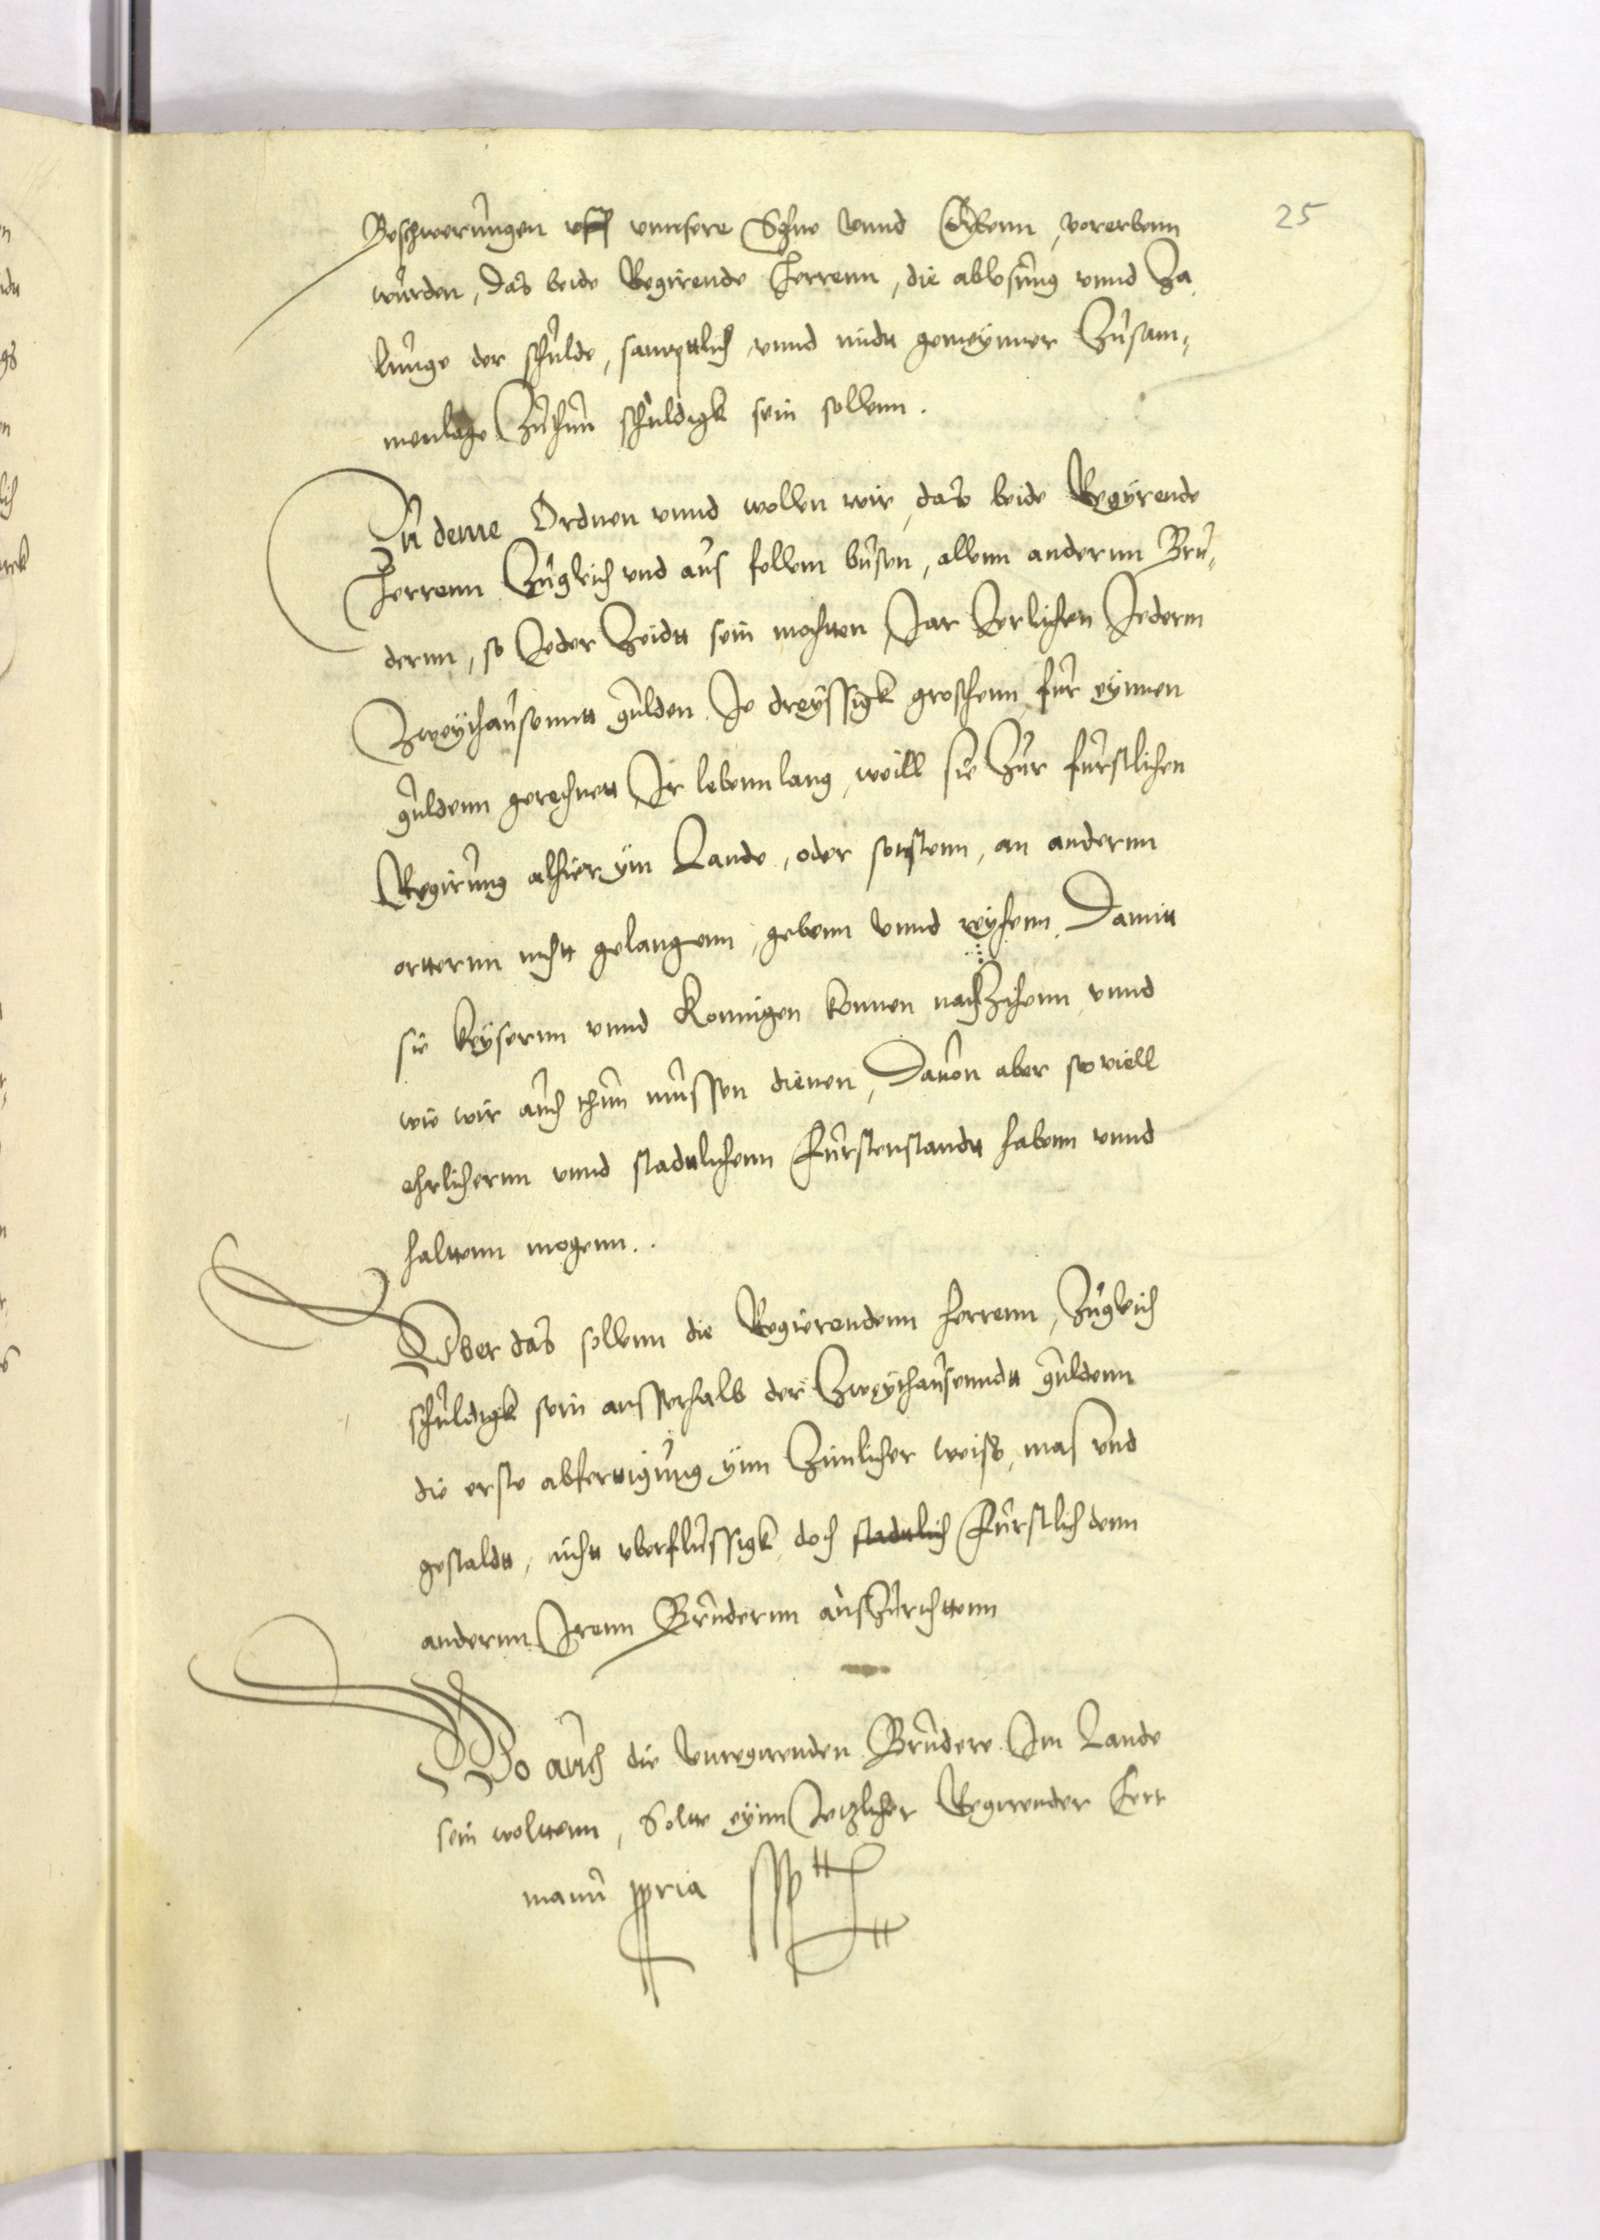 25
Beschwerungen uff unnsere Sohne unnd Erbenn, vorerbenn
wurden, das beide Regirende Herrenn, die ablosung unnd Za
lunge der schulde, samptlich unnd midtt gemeynner Zusam-
menlage Zuthun schuldigk sein sollenn.
Zu deme Ordnen unnd wollen wir, das beide Regyrende
Herrenn Zugleich und aus follem busen, allenn andernn Bru-
dernn, so Jeder Zeidtt sein mochtten, Jar Jerlichen Jedernn
Zweythausenntt gulden Je dreyssigk groschenn fur eynnen
guldenn gerechnett, Jr lebennlang, weill sie Zur furstlichen
Regirung alhier ym Lande, oder sonstenn, an anderrn
ortternn nichtt gelangenn, gebenn unnd reychenn, Damitt
sie keysernn unnd Konnigen konnen nachZihenn unnd
wie wir auch thun mussen dienen, Dauon aber so viell
ehrlichernn unnd stadttlichenn Furstenstandtt habenn unnd
halttenn mogenn.
Vber das sollenn die Regierendenn herrenn, Zugleich
schuldigk sein ausserhalb der Zweythausenndtt guldenn
die erste abferttigung ynn Zimlicher weiss, mas vnd
gestaldtt, nichtt uberflussigk, doch stadttlich Furstlich denn
anderrn Jrenn Brudernn ausZurichttenn
Wo auch die Vnregirenden Brudere Jm Lande
sein wolttenn, Soltte eynn Jetzlicher Regirender Herr
manu ppria